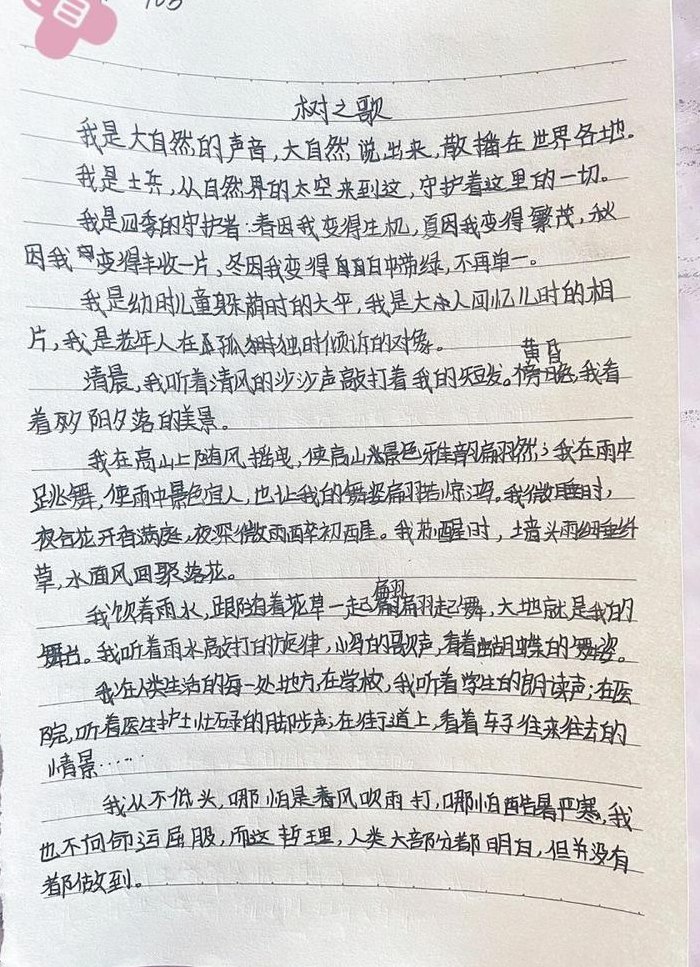 103
树之歌
我是大自然的声音,大自然说出来,散播在世界各地。
我是士兵,从自然界的太空来到这,守护着这里的一切。
我是四季的守护者:春因我变得生机,夏因我变得繁茂,秋
因我变得丰收一片,冬因我变得白中带绿,不再单一。
我是幼时儿童躲荫时的大伞,我是大人回忆儿时的相
片,我是老年人在孤独时倾诉的对象。
黄昏
清晨,我听着清风的沙沙声敲打着我的短发。傍晚,我看
着夕阳夕落的美景。
我在高山上随风摇曳,使高山景色雅韵翩翩然;我在雨中
跳舞,使雨中景色宜人,也让我的舞姿翩若惊鸿。我微睡时,
夜合花开香满庭,夜深微雨醉初醒。我苏醒时,墙头雨细垂纤
草,水面风回聚落花。
我饮着雨水,跟随着花草一起翩翩起舞,大地就是我的
舞台。我听着雨水敲打的旋律,小鸟的歌声,看着蝴蝶的舞姿。
我在人类生活的每一处地方,在学校,我听着学生的朗读声;在医
院,听着医生护士忙碌的脚步声;在街道上,看着车子往来往去的
情景……
我从不低头,哪怕是春风吹雨打,哪怕酷暑严寒,我
也不向命运屈服,而这哲理,人类大部分都明白,但并没有
都做到。